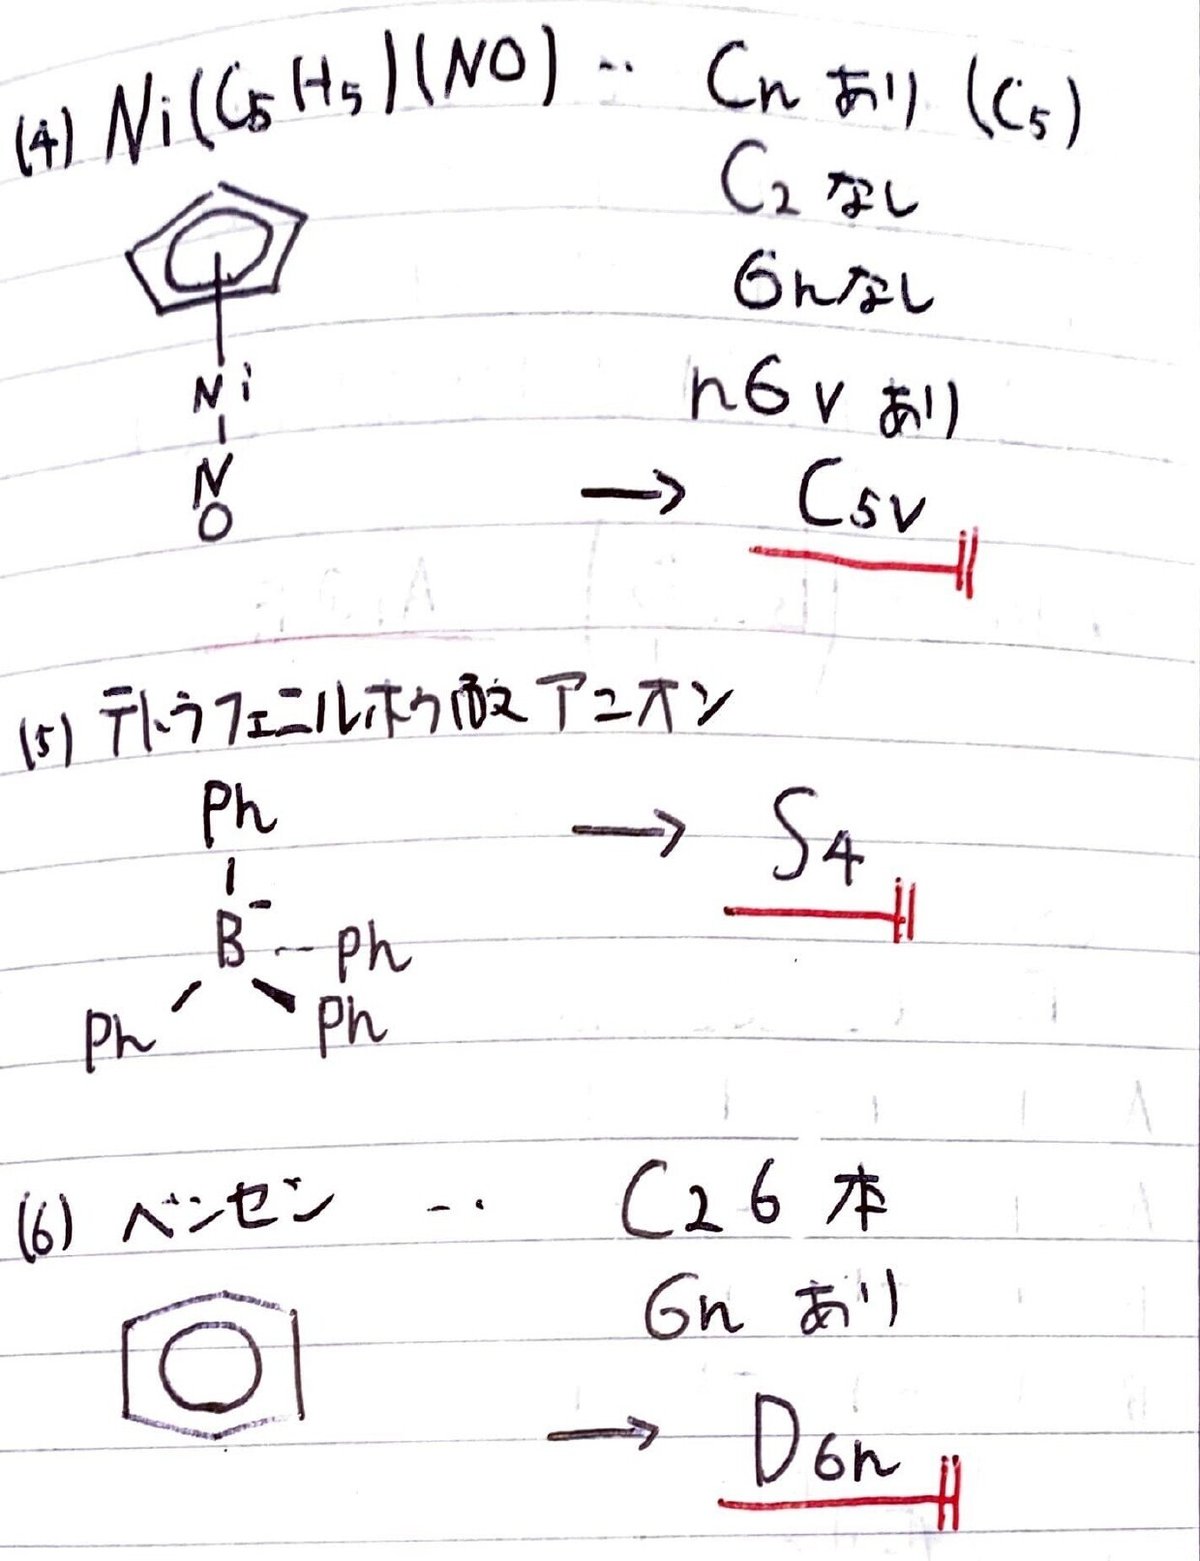 (4) Ni(C5H5)(NO) ‥ Cn あり (C5)
C2 なし
σhなし
nσv あり
Ni
N
O
→ C5v
(5) テトラフェニルホウ酸アニオン
Ph
→ S4
B- Ph
Ph Ph
(6) ベンゼン ‥ C2 6 本
σh あり
→ D6h